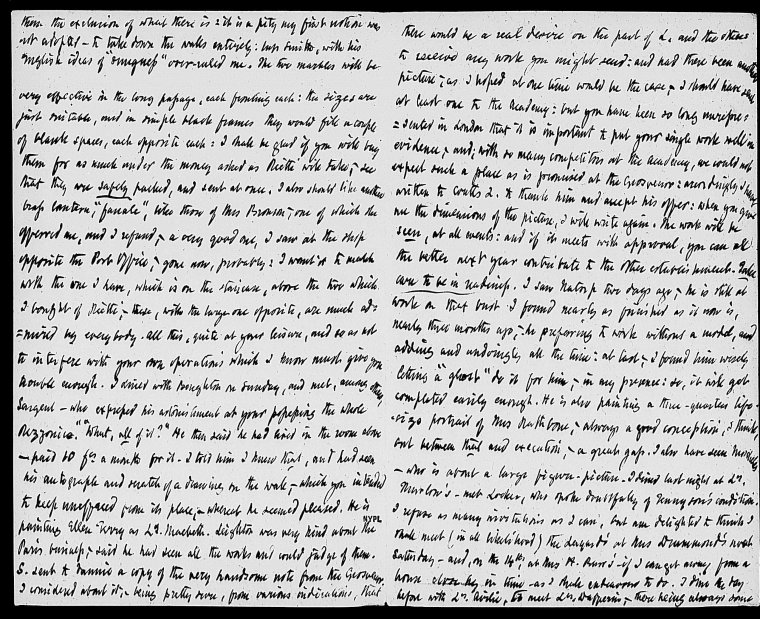 than the exclusion of what there is: it is a pity my first notion was
not adopted – to take down the walls entirely: but Smith, with his
English ideas of snugness" over-ruled me. The two marbles will be
very effective in the long passage, each fronting each: the sizes are
just suitable, and in simple black frames they would fill a couple
of blank spaces, each opposite each: I shall be glad if you will buy
them for as much under the money asked as Rietti will take, – see
that they are safely packed, and sent at once. I also should like another
brass lantern, "fanale", like those of Mrs Bronson, – one of which she
offered me, and I refused, – a very good one, I saw at the shop
opposite the Post Office, – gone now, probably: I want it to match
with the one I have, which is on the staircase, above the two which
I bought of Rietti, – these, with the large one opposite, are much ad-
=mired by everybody. All this, quite at your leisure, and so as not
to interfere with your own operations which I know must give you
trouble enough. I dined with Boughton on Sunday, and met, among others,
Sargent – who expressed his astonishment at your possessing the whole
Rezzonico. "What, all of it?" He then said he had lived in the room above
– paid 40 fcs a month for it. I told him I knew that, and had seen
his autograph and scratch of a drawing on the wall, – which you intended
to keep uneffaced from its place, – whereat he seemed pleased. He is
painting Ellen Terry as Ly. Macbeth. Leighton was very kind about the
NYPL
Paris business, – said he had seen all the works and could judge of them.
S. sent to Fannie a copy of the very handsome note from the Grosvenor,
I considered about it, – being pretty sure, from various indications, that
there would be a real desire on the part of L. and the others
to receive any work you might send: and had there been another
picture, – as I hoped at one time would be the case, – I should have sent
at least one to the Academy: but you have been so long unrepre=
=sented in London that it is important to put your single work well in
evidence, – and, with so many competitors at the Academy, we could not
expect such a place as is promised at the Grosvenor: accordingly I have
written to Coutts L. to thank him and accept his offer: when you give
me the dimensions of the picture, I will write again. The work will be
seen, at all events: and if it meets with approval, you can all
the better next year contribute to the other establishment. Take
care to be in readiness. I saw Natorp two days ago, – he is still at
work on that bust I found nearly as finished as it now is,
nearly three months ago, – he preferring to work without a model, and
adding and undoing all the time: at last, – I found him wisely
letting a "ghost" do it for him, – in my presence: so, it will get
completed easily enough. He is also painting a three-quarters life-
size portrait of Mrs Rathbone, – always a good conception, I think
but between that and execution, – a great gap. I also have seen
– who is about a large figure-picture. I dined last night at Ly.
– met Locker, who spoke doubtfully of Tennyson's condition.
I refuse as many invitations as I can, but am delighted to think I
shall meet (in all likelihood) the Layards at Mrs Drummond's next
Saturday – and, on the 14th, at Mrs H. – if I can get away from a
house close by in time – as I shall endeavour to do. I dine the day
before with Ly. Airlie, to meet Ly. Dufferin, – there being always some